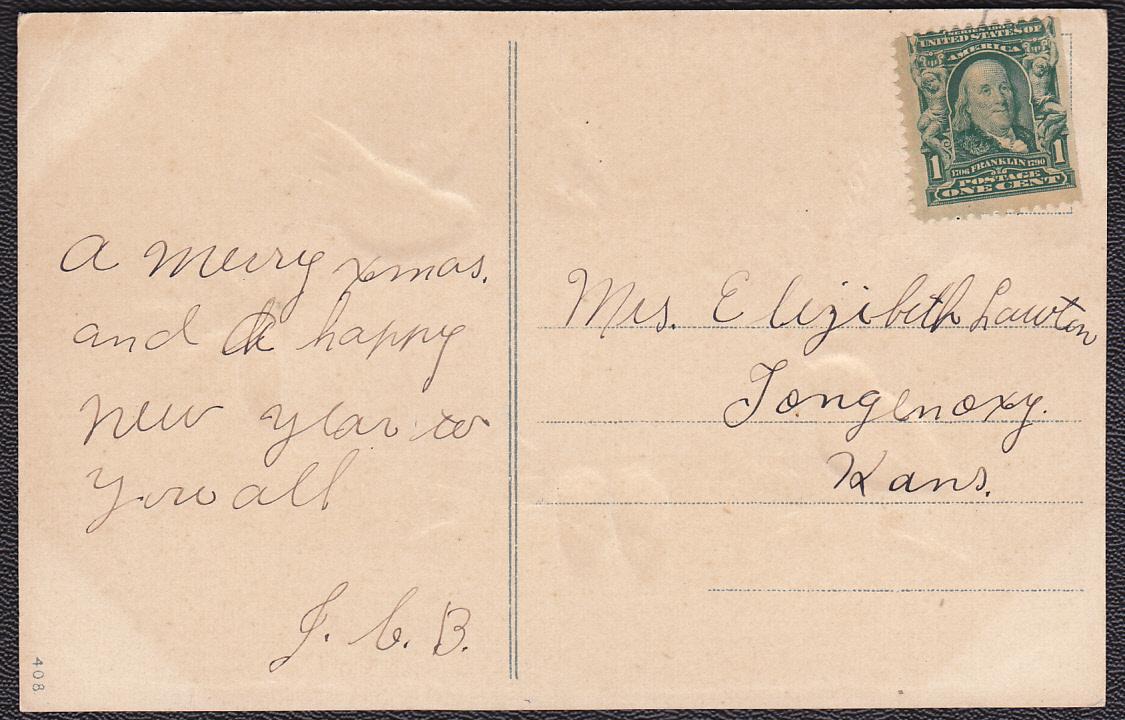 A Merry xmas.
and a happy
New year to
you all
J. C. B.
408
SERIES 1902
UNITED STATES OF
AMERICA
1 1
1706 FRANKLIN 1790
POSTAGE
ONE CENT
Mrs. Elizibeth Lawton
Tongenoxy.
Kans.